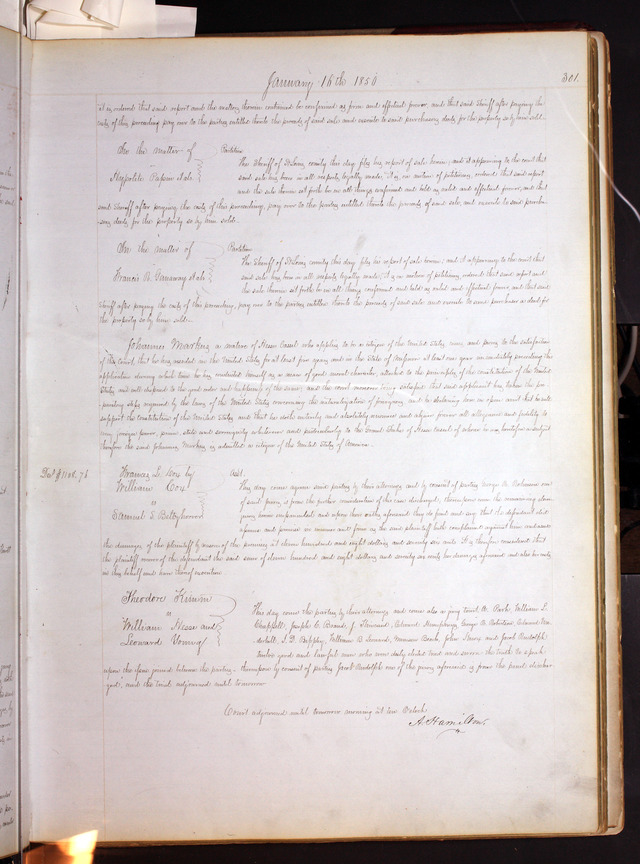 January 16th 1856
301.
it is ordered that said report and the matters therein contained be confirmed as firm and effectual forever, and that said Sheriff after paying the
costs of this proceeding pay over to the parties entitled thereto the proceeds of said sale and execute to said purchasers deeds for the property so by him sold.
In the matter of
Partition
Hippolite Papin et al
The Sheriff of St Louis county this day files his report of sale herein; and it appearing to the court that
said sale has been in all respects legally made, it is, on motion of petitioners, ordered that said report
and the sale therein set forth be in all things confirmed and held as valid and effectual forever, and that
said Sheriff after paying the costs of this proceeding, pay over to the parties entitled thereto the proceeds of said sale, and execute to said purcha-
sers deeds for the property so by him sold.
In the matter of
Partition
Francis R. Ganaway et al
The Sheriff of St Louis county this day files his report of sale herein; and it appearing to the court that
said sale has been in all respects legally made, it is on motion of petitioners, ordered that said report and
the sale therein set forth be in all things confirmed and held as valid and effectual forever, and that said
Sheriff after paying the costs of this proceeding, pay over to the parties entitled thereto the proceeds of said sale and execute to said purchaser a deed for
the property so by him sold.
Johannes Marking a native of Hesse Cassel who applies to be a citizen of the United States, comes and proves to the satisfaction
of the Court, that he has resided in the United States for at least five years and in the State of Missouri at least one year immediately preceding this
application during which time he has conducted himself as a man of good moral character, attached to the principles of the constitution of the United
States, and well disposed to the good order and happiness of the same; and the court moreover being satisfied that said applicant has taken the pre-
paratory steps required by the laws of the United States concerning the naturalization of foreigners, and he declaring here in open court that he will
support the constitution of the United States and that he doth entirely and absolutely renounce and abjure forever all allegiance and fidelity to
every foreign power, prince, state and sovereignty whatsoever and particularly to the Grand Duke of Hesse Cassel of whom he was heretofore a subject
therefore the said Johannes Marking is admitted a citizen of the United States of America.
Francis L. Cox by
William Cox
vs
Samuel S. Bettyhouse
This day come again said parties by their attorneys and by consent of parties George
of said jurors, is from the further consideration of this case discharged, thereupon the remaining eleven
jurors upon their oaths aforesaid they do find and say that the defendant did
assume and promise in manner and form as the said plaintiff hath complained against him and assess
the damages of the plaintiff by reason of the premises at eleven hundred and eight dollars and seventy six cents. It is therefore considered that
the plaintiff recover of the defendant the said sum of eleven hundred and eight dollars and seventy six cents his damages aforesaid and also his costs
in this behalf and have thereof execution
Theodore Kimm
vs
William Hesse and
Leonard Young
This day come the parties by their attorneys and comes also a jury
William L.
Chappell, Joseph
John
and Jacob Rudolph
twelve good and lawful men who were duly elected tried and sworn the truth to speak
upon the issue joined between the parties. thereupon by consent of parties Jacob Rudolph one of the jurors aforesaid is from the panel dischar-
ged, and the trial adjourned until tomorrow
Court adjourned until tomorrow morning at ten Oclock
A. Hamilton